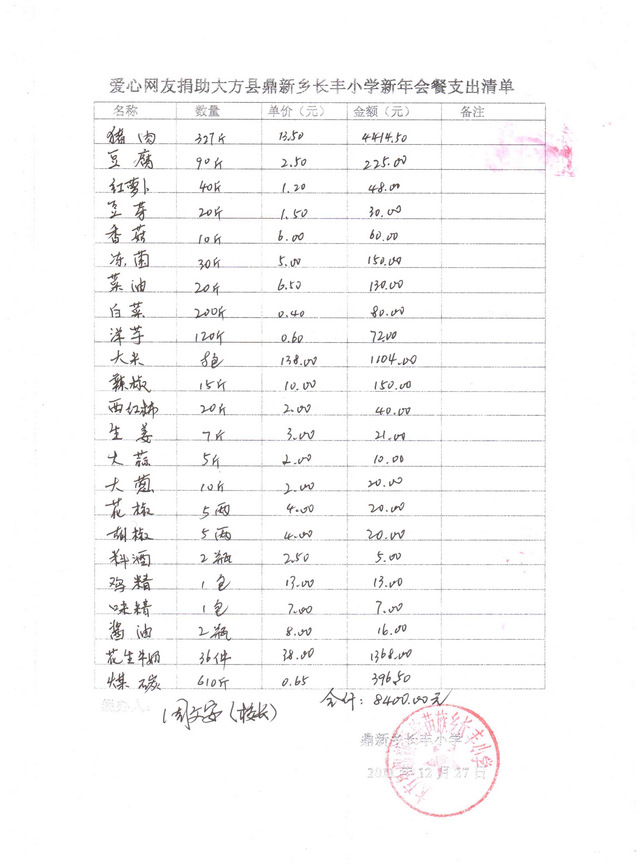 爱心网友捐助大方县鼎新乡长丰小学新年会餐支出清单
名称 数量 单价（元） 金额（元） 备注
猪肉 327斤 13.50 4414.50
豆腐 90斤 2.50 225.00
红萝卜 40斤 1.20 48.00
豆芽 20斤 1.50 30.00
香菇 10斤 6.00 60.00
冻菌 30斤 5.00 150.00
菜油 20斤 6.50 130.00
白菜 200斤 0.40 80.00
洋芋 120斤 0.60 72.00
大米 8包 138.00 1104.00
辣椒 15斤 10.00 150.00
西红柿 20斤 2.00 40.00
生姜 7斤 3.00 21.00
大蒜 5斤 2.00 10.00
大葱 10斤 2.00 20.00
花椒 5两 4.00 20.00
胡椒 5两 4.00 20.00
料酒 2瓶 2.50 5.00
鸡精 1包 13.00 13.00
味精 1包 7.00 7.00
酱油 2瓶 8.00 16.00
花生牛奶 36件 38.00 1368.00
煤碳 610斤 0.65 396.50
合计：8400.00元
周文安（校长）
鼎新乡长丰小学
年12月27日
苗族乡长丰小学